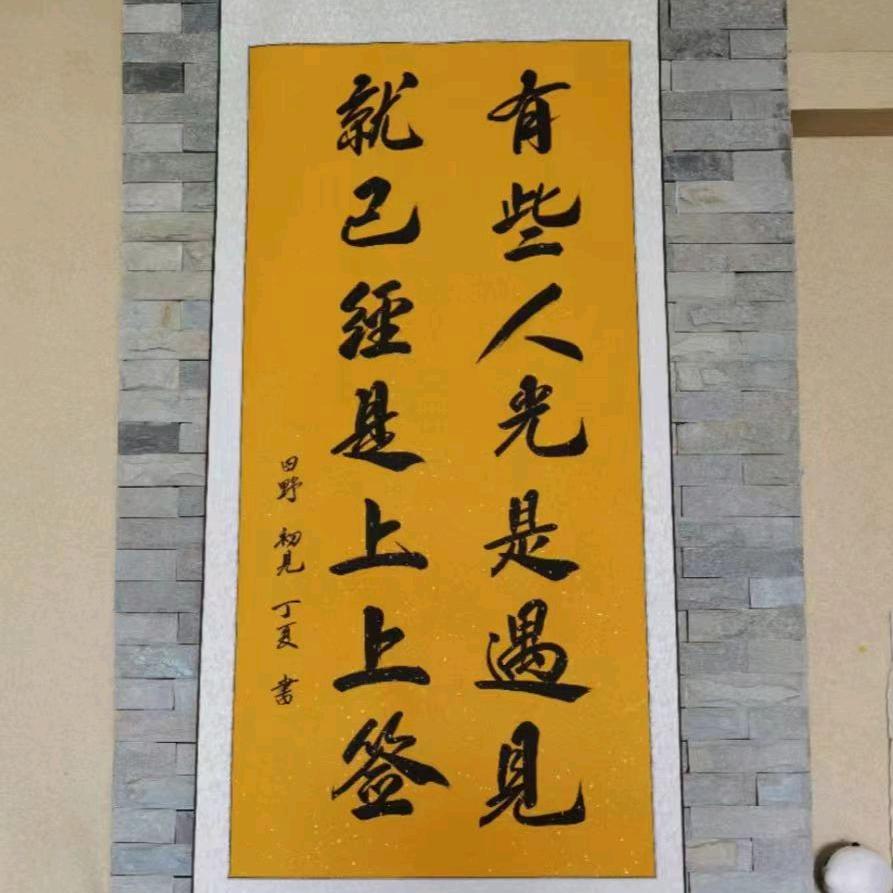 有些人光是遇見
就已經是上上签
田野 初見 丁夏 書